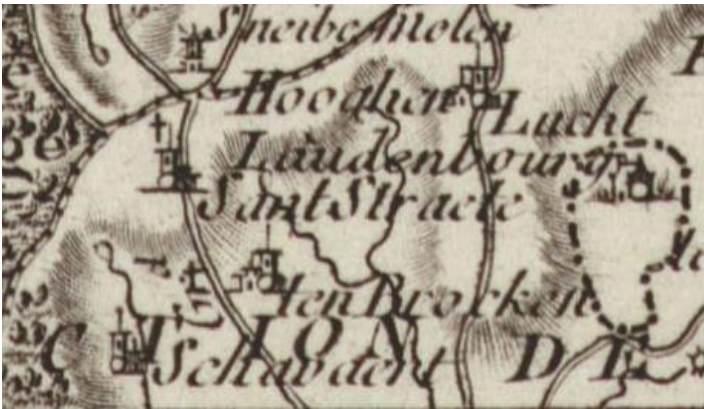 Sneibe Molen
Hooghen
Lucht
Laudenbourg
Sant Straete
ten Brocken
C T I O N D E
Schavaert